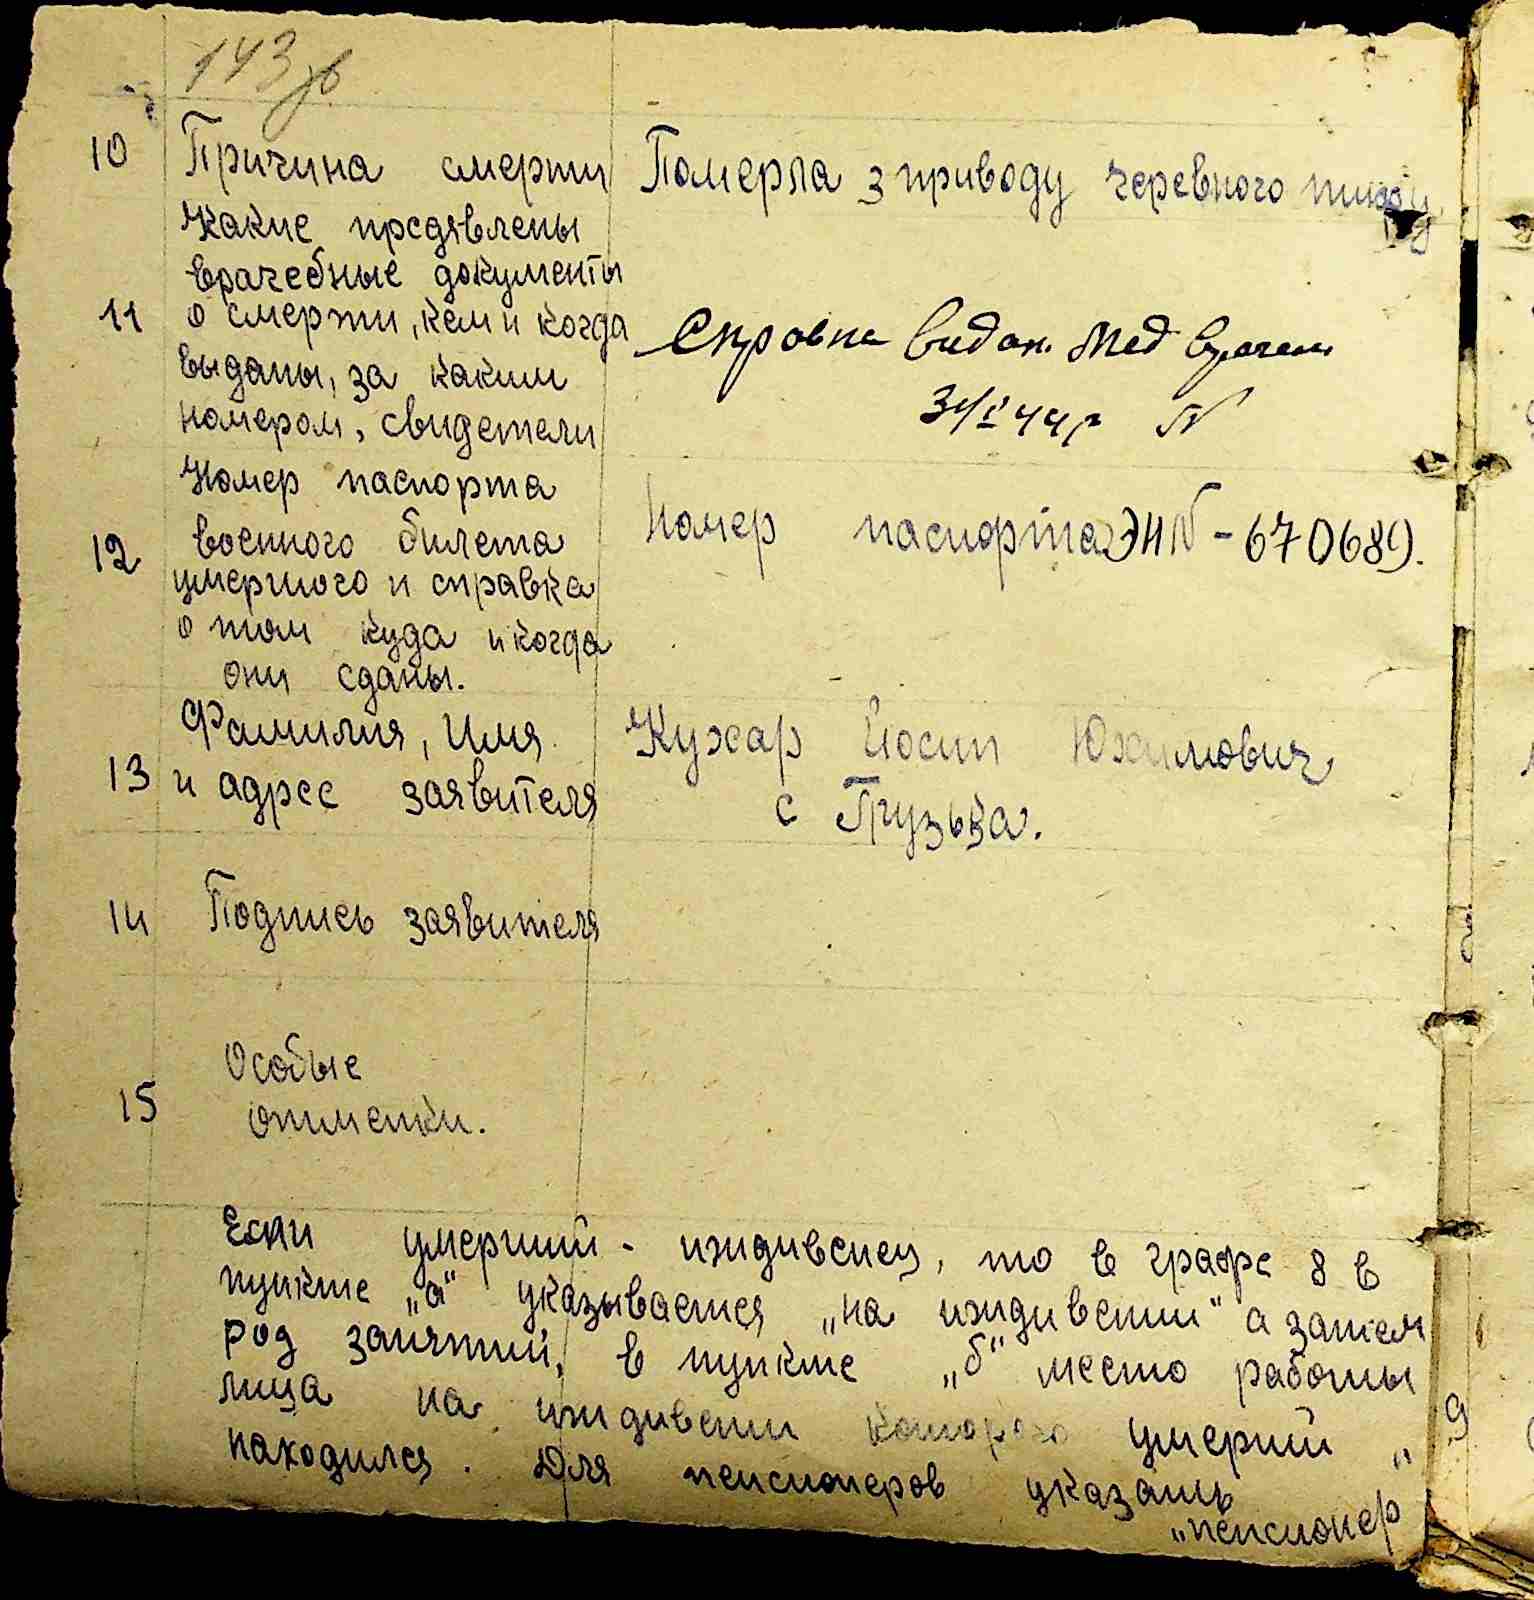 143 зв
10 Причина смерти Померла з приводу черевного тифу
Какие предявлены
врачебные документы
11 о смерти, кем и когда Справка видан. Мед врачем
выданы, за каким
номером, свидетели
Номер паспорта
12 военного билета Номер паспорта ЭН№ - 670689.
умершого и справка
о том куда и когда
они сданы.
Фамилия, Имя Кухар Йосип Юхимович
13 и адрес заявителя с Грузька.
14 Подпись заявителя
Особые
15 отметки.
Если умерший - иждивенец, то в графе 8 в
пункте „а“ указывается „на иждивении“ а затем
род занятий, в пункте „б“ место работы
лица на иждивении которого умерший „
находился. Для пенсионеров указать
„пенсионер